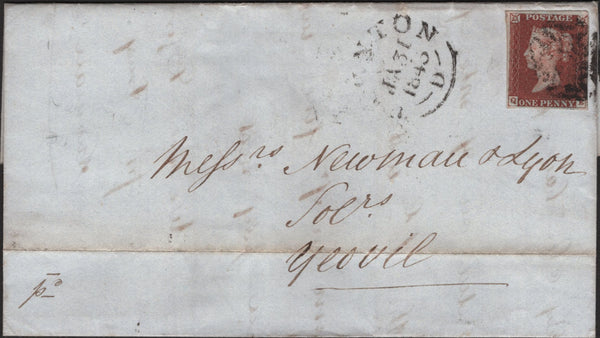 POSTAGE
ONE PENNY
NTON
JA 31
184
D
Messrs Newman & Lyon
Solrs
Yeovil
pd